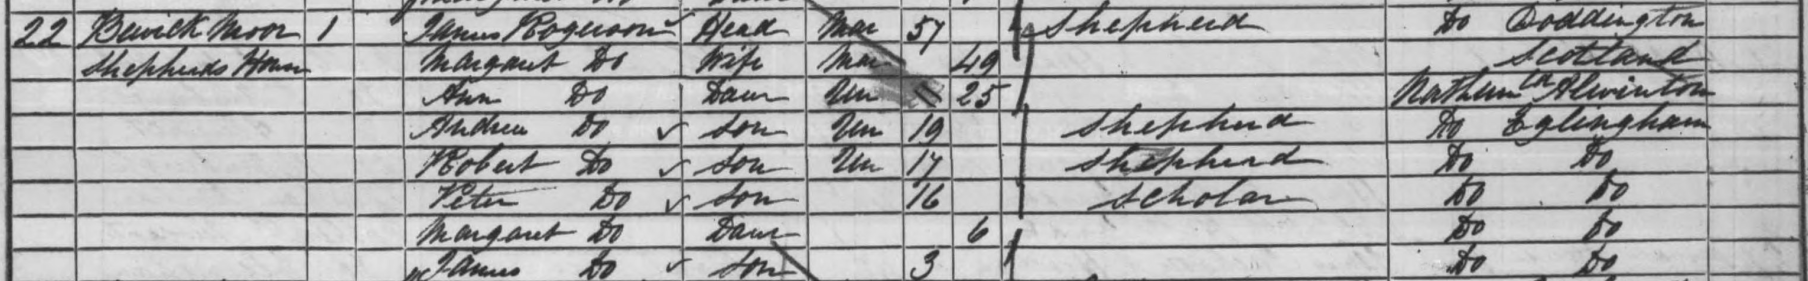 22 Bewick Moor 1 James Rogerson Head Mar 57 Shepherd Do Doddington
Shepherds House Margaret Do Wife Mar 49 Scotland
Ann Do Daur Un 25 Northumld Alwinton
Andrew Do Son Un 19 Shepherd Do Eglingham
Robert Do Son Un 17 Shepherd Do Do
Peter Do Son 16 Scholar Do Do
Margaret Do Daur 6 Do Do
James Do Son 3 Do Do